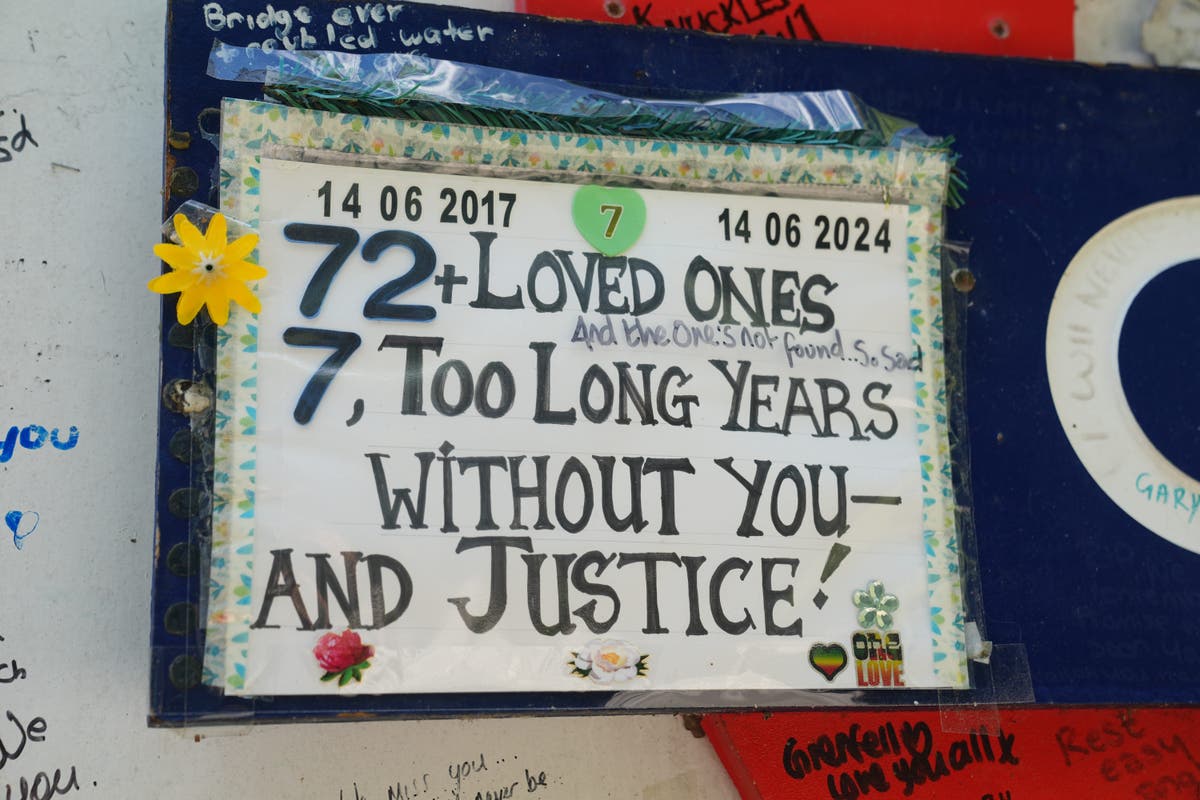 Bridge over
roubled water
KNUCKLES
14 06 2017
7
14 06 2024
72+LOVED ONES
And the One's not found...So Sad
7, TOO LONG YEARS
WITHOUT YOU—
AND JUSTICE!
one
LOVE
you
We
you.
I WII NEV
GARY
Miss you...
never be
Grenfell
love you all x
Rest
easy